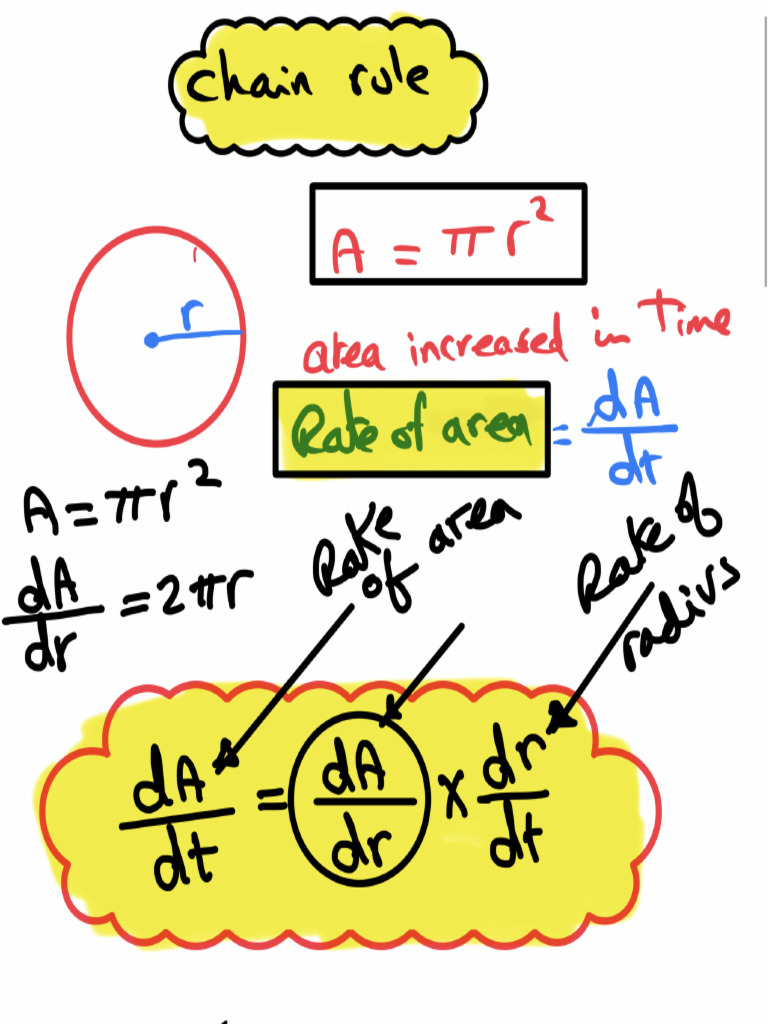 chain rule
A = πr²
r
area increased in Time
Rate of area = dA/dt
A = πr²
dA/dr = 2πr
Rate of area
Rate of radius
dA/dt = dA/dr x dr/dt